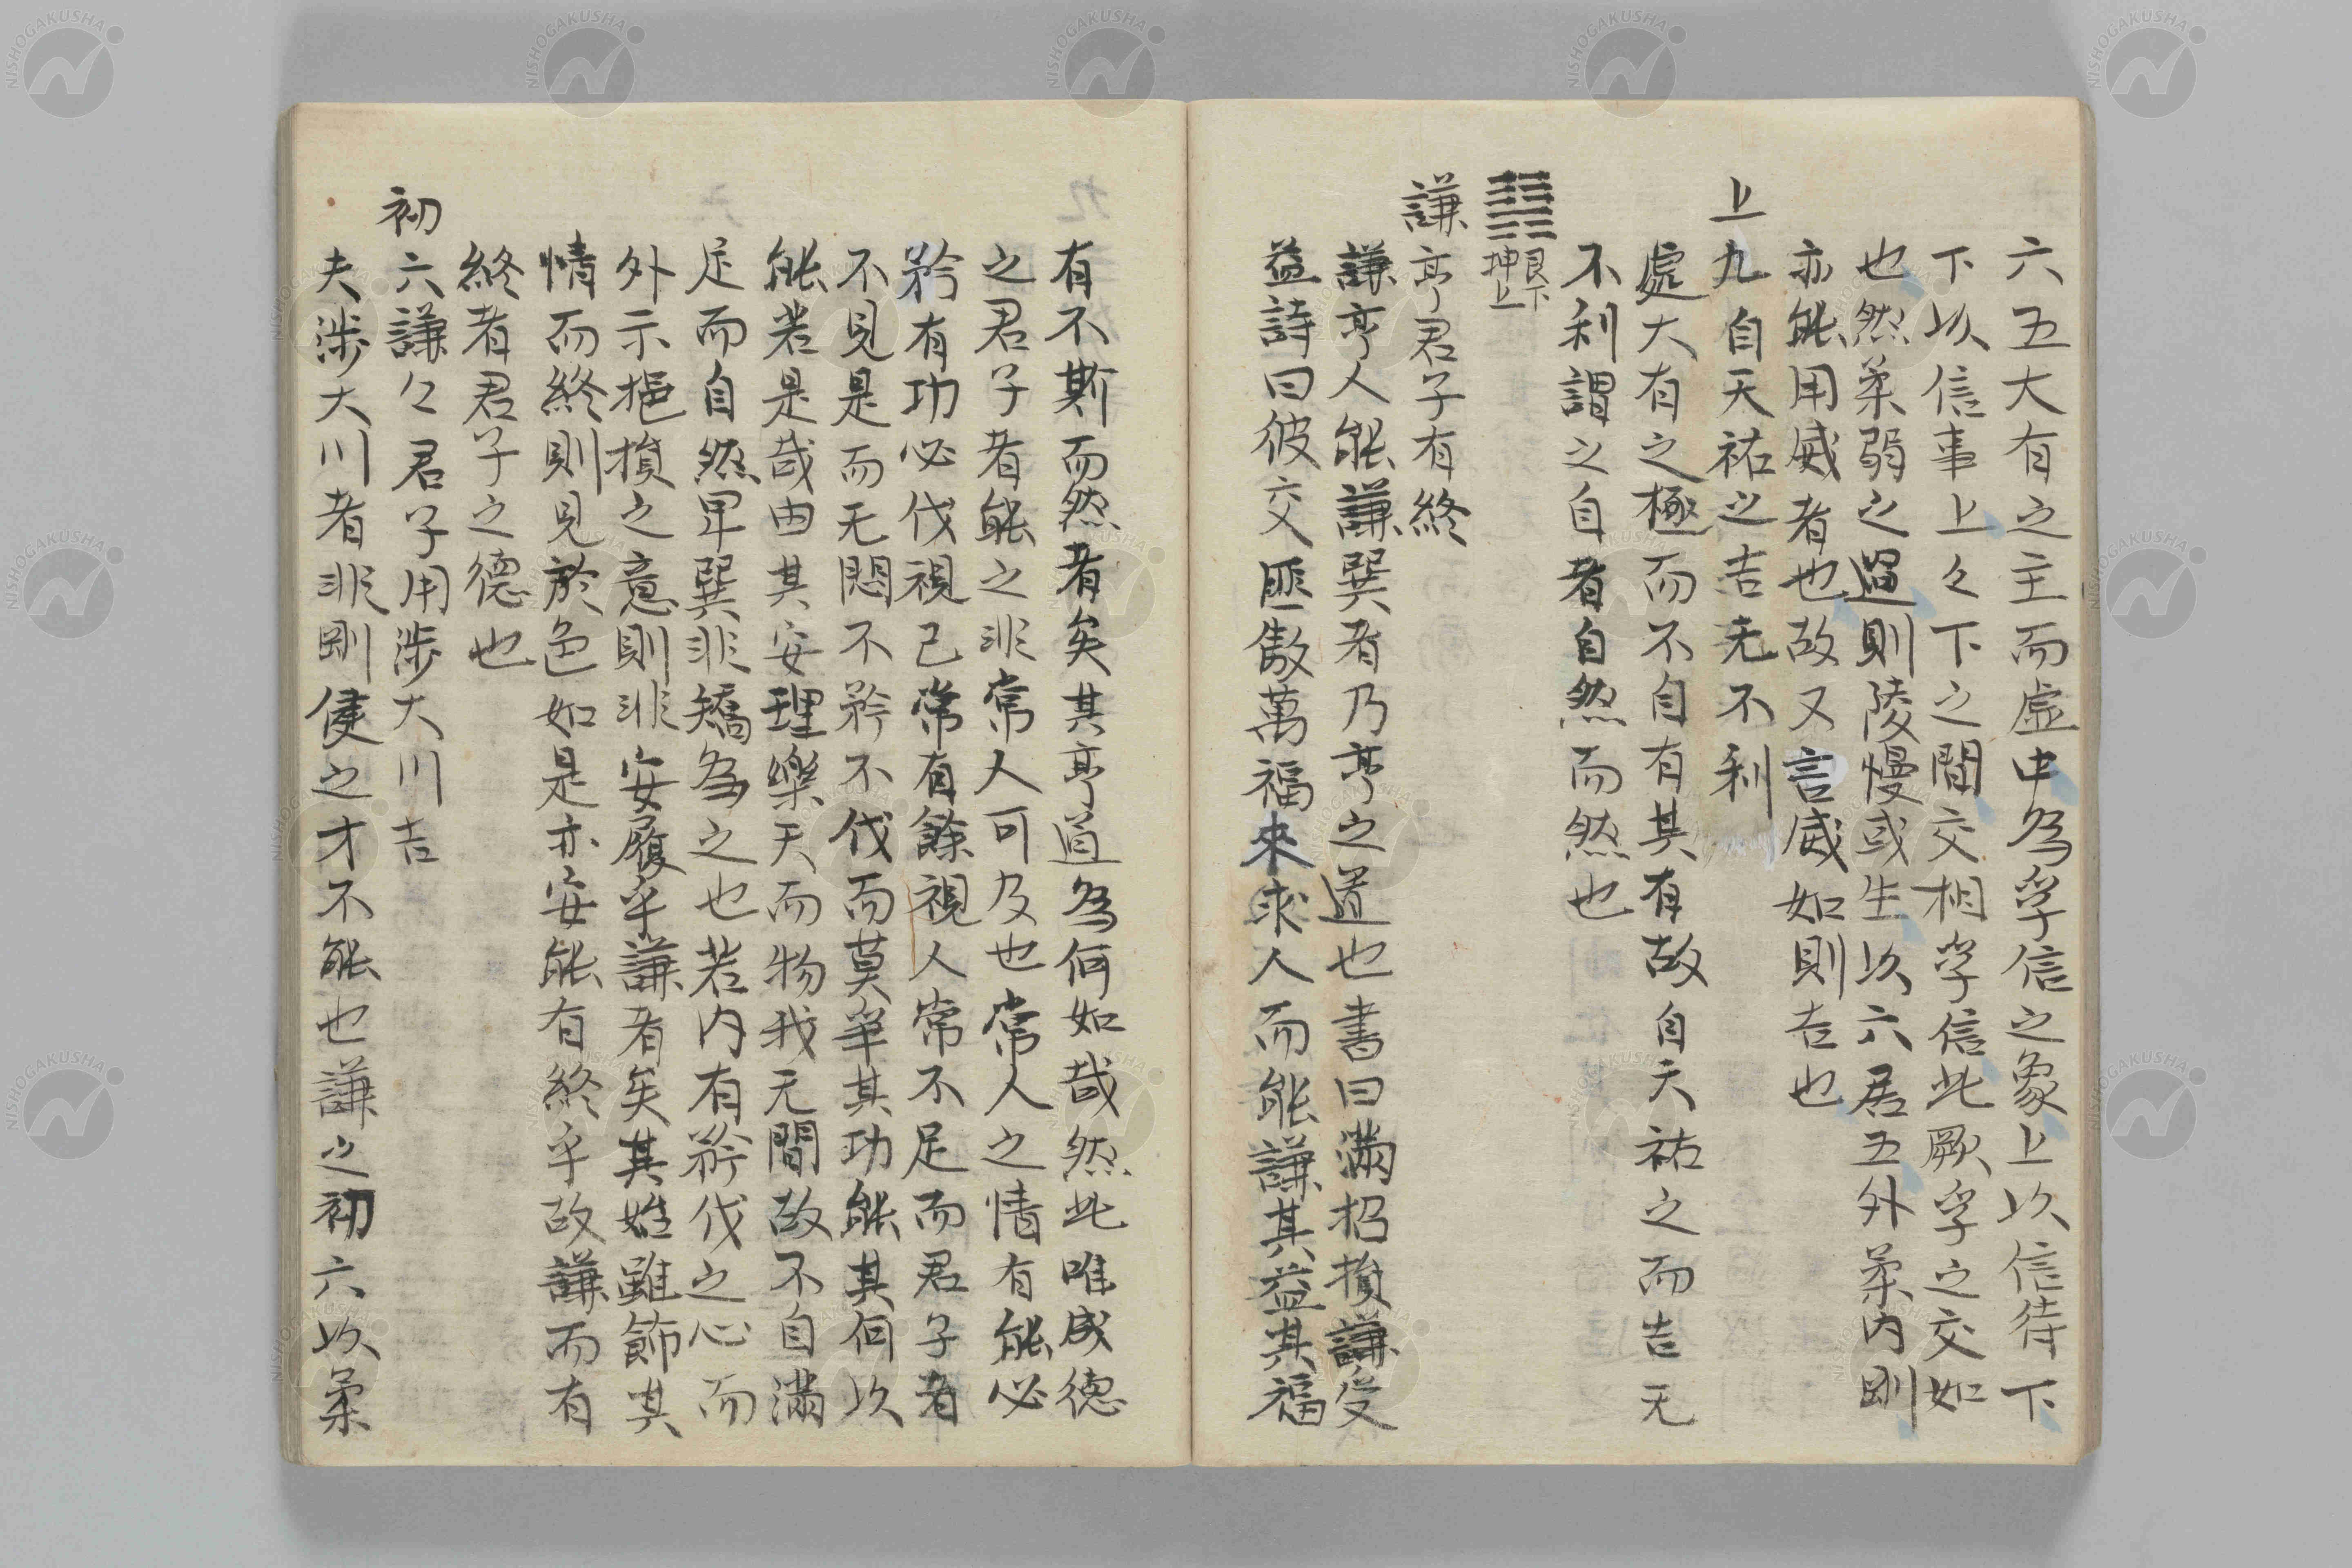 六五大有之主而虛中為孚信之象上以信待下
下以信事上々下之間交相孚信此厥孚之交如
也然柔弱之過則陵慢或生以六居五外柔內剛
亦能用威者也故又言威如則吉也
上九自天祐之吉无不利
處大有之極而不自有其有故自天祐之而吉无
不利謂之自者自然而然也
䷎艮下坤上
謙亨君子有終
謙亨人能謙巽者乃亨之道也書曰滿招損謙受
益詩曰彼交匪敖萬福來求人而能謙其益其福
有不斯而然者矣其亨道為何如哉然此唯成德
之君子者能之非常人可及也常人之情有能必
矜有功必伐視己常有餘視人常不足而君子者
不見是而无悶不矜不伐而莫爭其功能其何以
能若是哉由其安理樂天而物我无間故不自滿
足而自然卑巽非矯為之也若內有矜伐之心而
外示挹損之意則非安履乎謙者矣其始雖飾其
情而終則見於色如是亦安能有終乎故謙而有
終者君子之德也
初六謙々君子用涉大川吉
夫涉大川者非剛健之才不能也謙之初六以柔